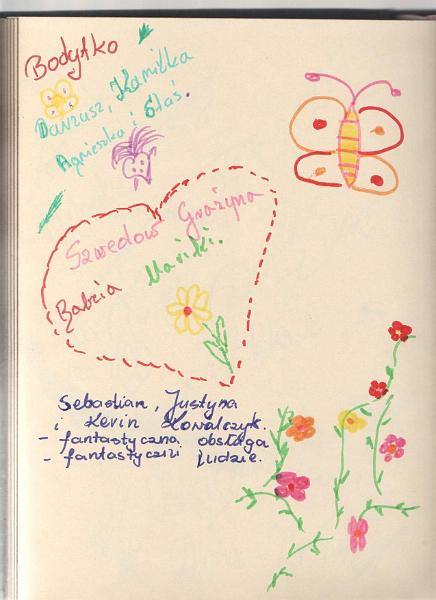 Bodytko
Dariusz, Kamilka
Agnieszka i Staś.
Szwedow Grażyna
Babcia Marilki.
Sebastian, Justyna
i Kevin Kowalczyk.
- fantastyczna obsługa
- fantastyczni ludzie.